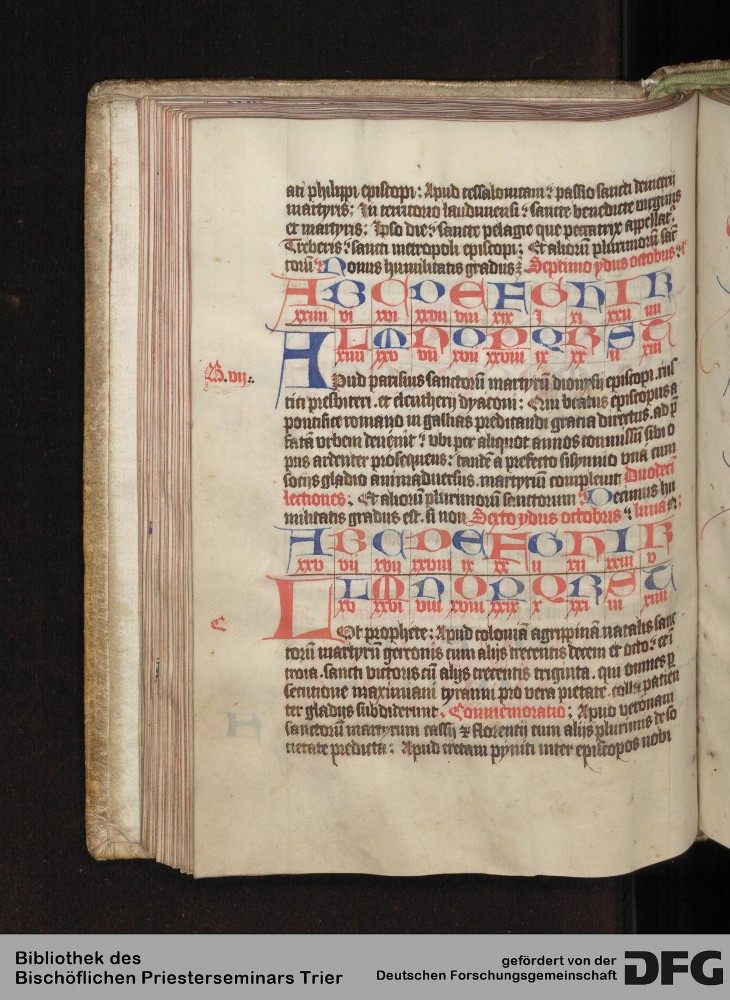 ati philippi episcopi: Apud tessalonicam: passio sancti demetrij
martyris: In territorio laudunensi: sancte benedicte virginis
et martyris: Ipso die: sancte pelagie que peccatrix appellat:
Treberis: sancti metropoli episcopi: Et alioru plurimoru sāc
toru: Nonus humilitatis gradus: Septimo ydus octobus: 
A B C D E F G H I K
xxiiii vi xvi xxvii viii xix i xi xxii iiii
L M N O P Q R S T
xiiii xxv vii xvii xxviii ix xx ii xiii
B. vij:.
Apud parisius sanctoru martyru dionysij episcopi. rus
tici presbiteri. et eleutherij dyaconi: Qui beatus episcopus a
pontifice romano in gallias predicandi gracia directus. ad p
fatā vrbem deuenit: vbi per aliquot annos commissū sibi o
pus ardenter prosequens: tandē a prefecto sisynnio vnā cum
socijs gladio animaduersus. martyriū compleuit Duodeci
lectiones: Et alioru plurimoru sanctorum: Decimus hu
militatis gradus est. si non Sexto ydus octobris: luna
A B C D E F G H I K
xxv vii xvii xxviii ix xx ii xii xxiii v
L M N O P Q R S T
xv xxvi viii xviii xxix x xxi iii xiiii
C
Lot prophete: Apud coloniā agrippinā natalis sanc
toru martyru gereonis cum alijs trecentis decem et octo: et i
troia. sancti victoris cū alijs trecentis triginta. qui omnes p
secutione maximiani tyranni pro vera pietate. colla patien
ter gladijs subdiderunt. Commemoratio: Apud veronam
sanctorū martyrum cassij & florentij cum alijs plurimis de so
cietate predicta: Apud cretam pyniti inter episcopos nobi
Bibliothek des
Bischöflichen Priesterseminars Trier
gefördert von der
Deutschen Forschungsgemeinschaft
DFG